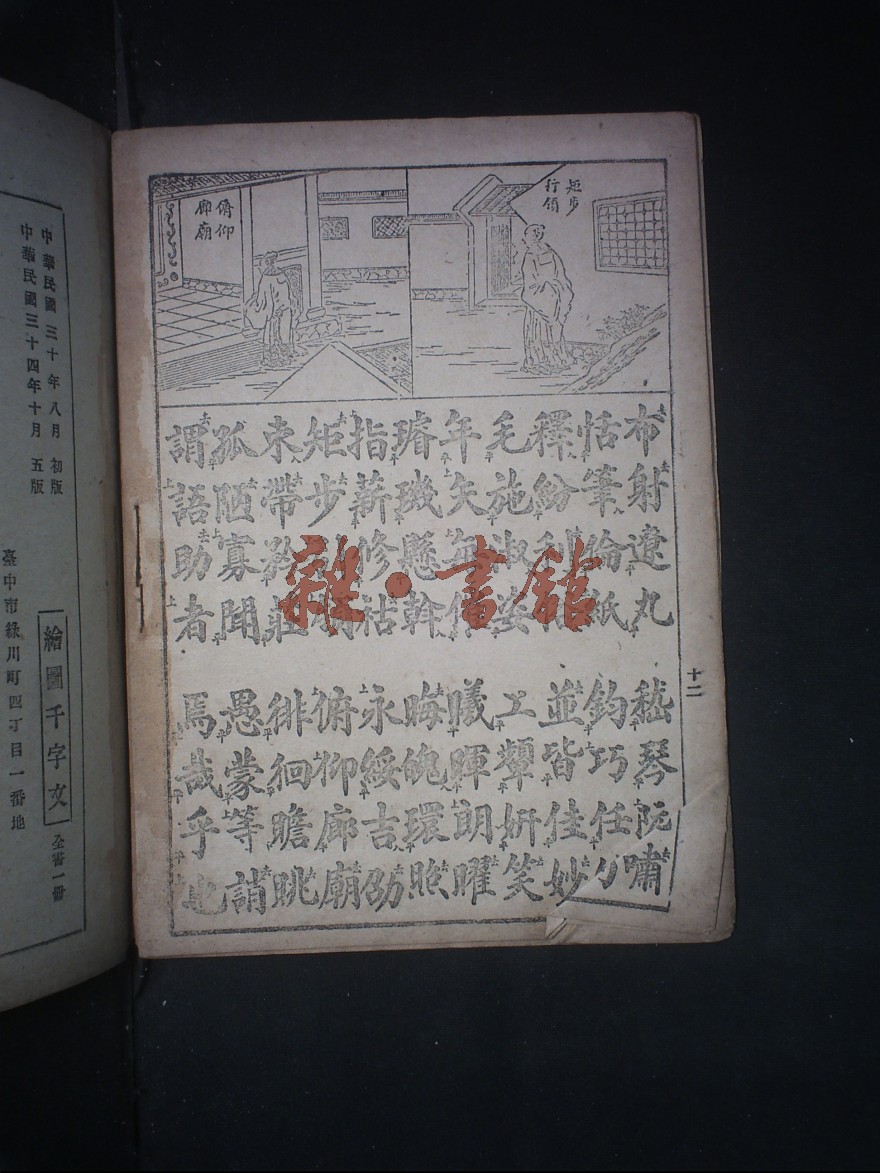 矩步
行領
俯仰
廊廟
布射遼丸 嵇琴阮嘯
恬筆倫紙 鈞巧任
釋紛利 並皆佳妙
毛施淑姿 工顰妍笑
年矢每 曦暉朗曜
璿璣懸幹 晦魄環照
指薪修祜 永綏吉劭
矩步領 俯仰廊廟
束帶矜莊 徘徊瞻眺
孤陋寡聞 愚蒙等誚
謂語助者 焉哉乎也
十二
雜·書館
中華民國三十年八月 初版
中華民國三十四年十月 五版
繪圖千字文 全書一冊
臺中市綠川町四丁目一番地